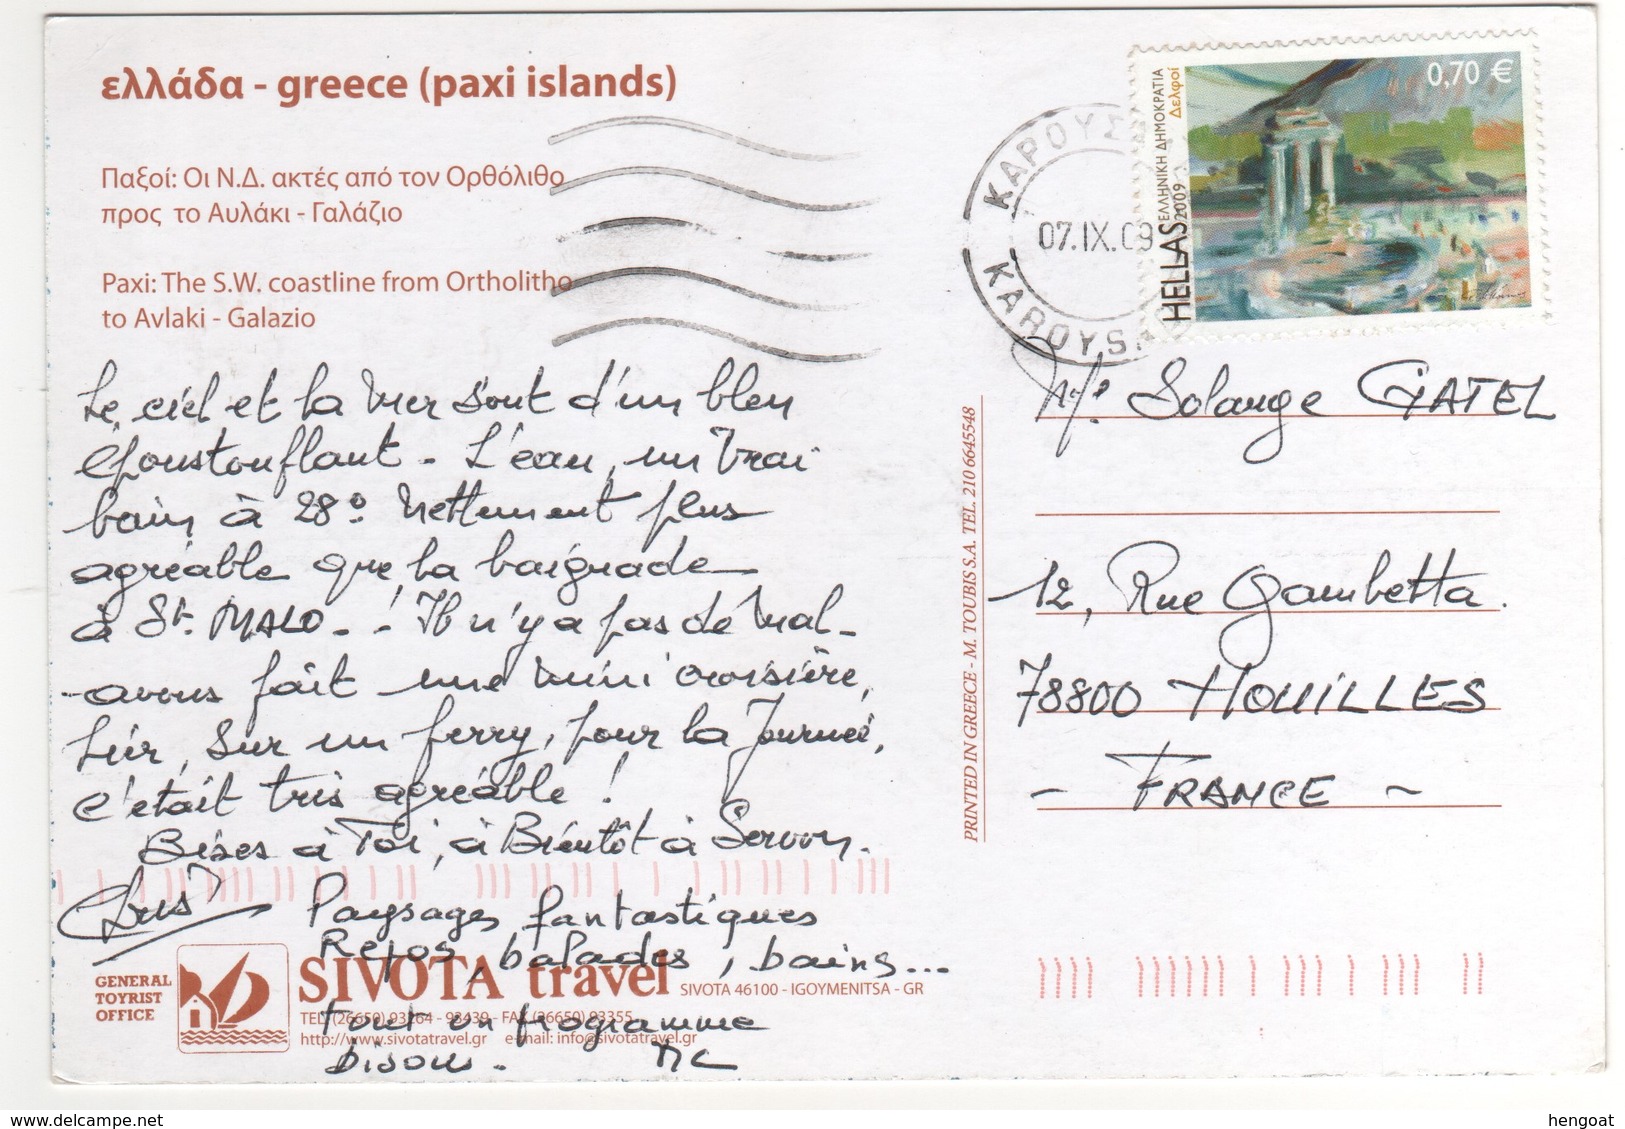 ελλάδα - greece (paxi islands)
Παξοί: Οι Ν.Δ. ακτές από τον Ορθόλιθο
προς το Αυλάκι - Γαλάζιο
Paxi: The S.W. coastline from Ortholitho
to Avlaki - Galazio
Le ciel et la mer sont d'un bleu
époustouflant - L'eau, un vrai
bain à 28° nettement plus
agréable que la baignade
à St. MALO - ! Il n'y a pas de mal -
- avons fait une mini croisière,
hier, sur un ferry, pour la journée,
c'était très agréable !
Bises à Toi, à Bientôt à Servon.
Paysages fantastiques
Repos, balades, bains...
Tout un programme
Bisous. MC
GENERAL
TOYRIST
OFFICE
SIVOTA travel
SIVOTA 46100 - IGOYMENITSA - GR
TEL (26650) 93264 - 93439 - FAX (26650) 93355
http://www.sivotatravel.gr e-mail: info@sivotatravel.gr
PRINTED IN GREECE - M. TOUBIS S.A. TEL. 210 6645548
ΚΑΡΟΥΣ
07.IX.09
KAROYS
0,70 €
ΕΛΛΗΝΙΚΗ ΔΗΜΟΚΡΑΤΙΑ
Δελφοί
HELLAS 2009
Me Solange GATEL
12, Rue Gambetta.
78800 HOUILLES
- FRANCE -
www.delcampe.net
hengoat